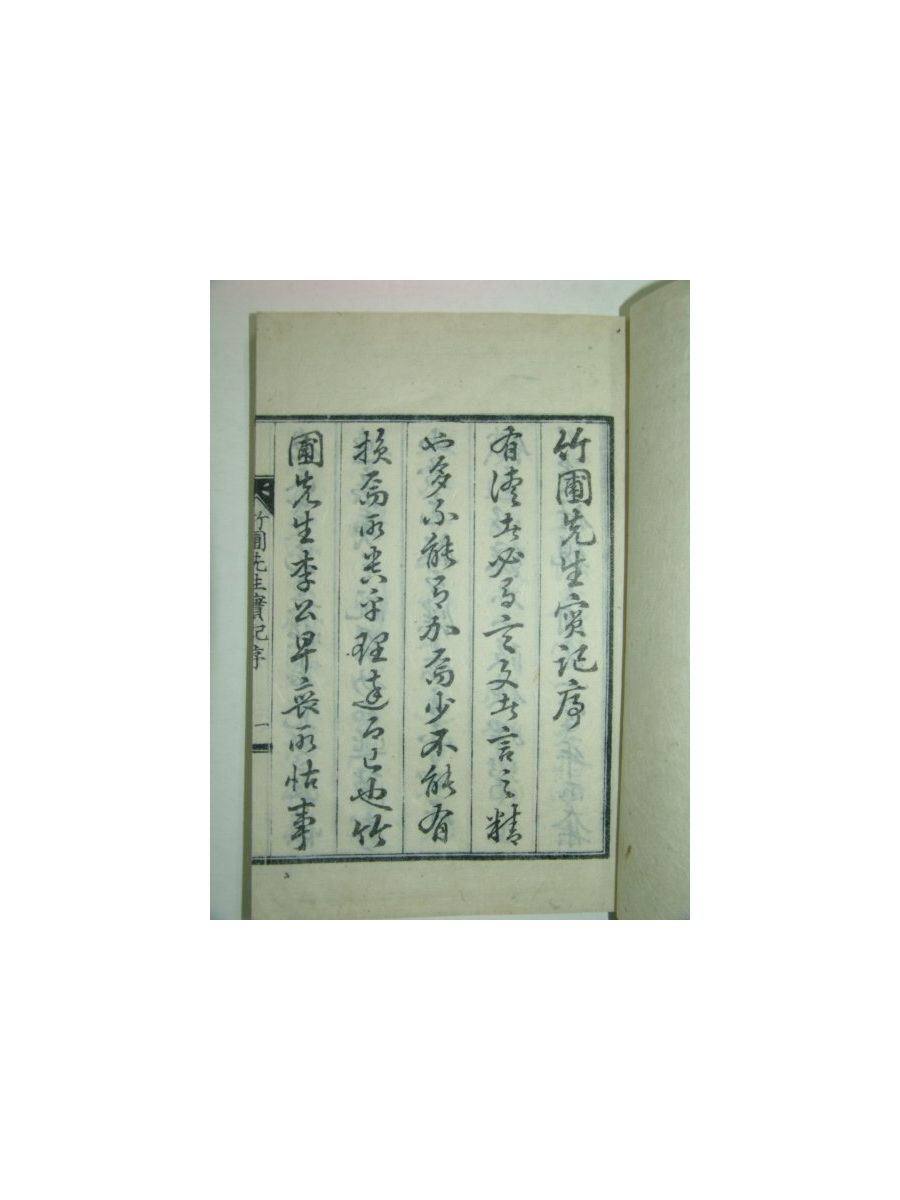 竹圃先生實記序
有德者必有言文者言之精
也多不能有加而少不能有
損而所貴乎理達而已也竹
圃先生李公早喪所怙事
竹圃先生實記序 一